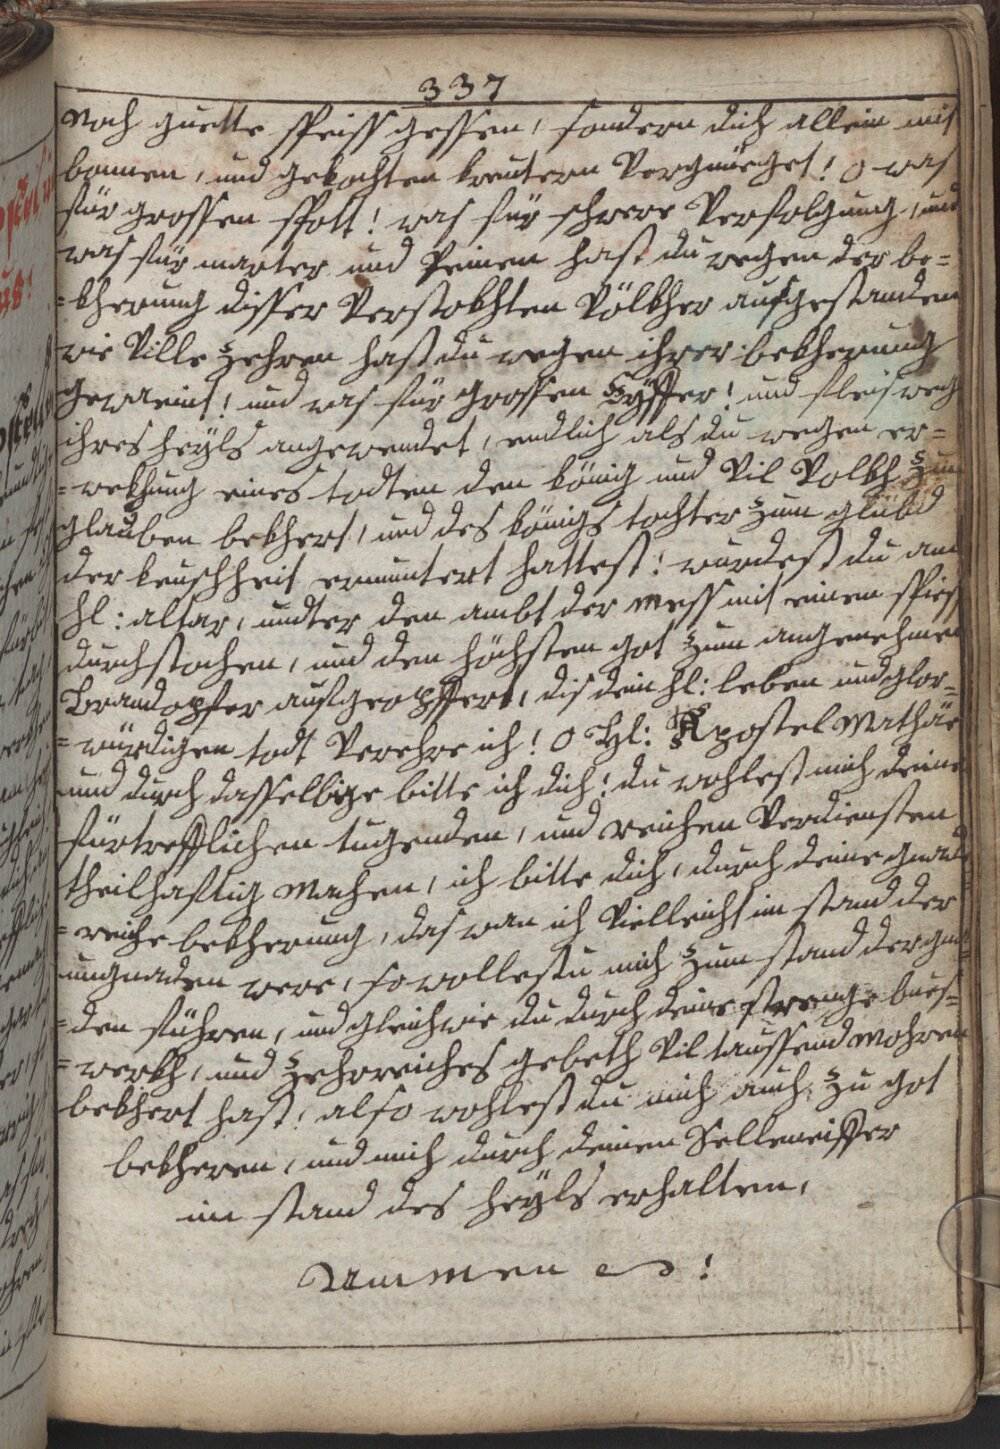 337
Noch guette speiss gessen, sondern dich allein mit
bonnen, und gekochten kreutern Vergnüeget! O was
für grossen spott! was für schwere Verfolgung, und
was für marter und Peinen hast du wegen der be=
=kherung disser Verstokhten Völkher aufgestanden
wie Ville Zehren hast du wegen ihrer bekherung
geweint! und was für grossen Eyffer! und fleis weg
ihres heyls angewendet, endlich als du wegen er=
=wekhung eines todten den König und Vil Volkh zum
glauben bekhert, und des Königs tochter zum glübd
der keuschheit ermuntert hattest! wurdest du am
hl: altar, undter den ambt der Mess mit einen spiess
durchstochen, und den höchsten got zum angenehmen
Brandopfer aufgeopffert, dis dein hl: leben und glor=
=würdigen todt Verehre ich! O Hl: Apostel Mathäe
und durch dasselbige bitte ich dich! du wohlest mich deine
fürtrefflichen tugenden, und reichen Verdiensten
theilhafftig Machen, ich bitte dich, durch deine gnad
=reiche bekherung, das wan ich Villeicht im stand der
ungnaden were, so wollestu mich zum stand der gna
=den führen, und gleich wie du durch deine strenge bues=
=werkh, und Zehrreiches gebeth Vil taussend Mohren
bekhert hast! also wohlest du mich auch zu got
bekheren, und mich durch deinen Selleneiffer
im stand des heyls erhalten,
Ammen!